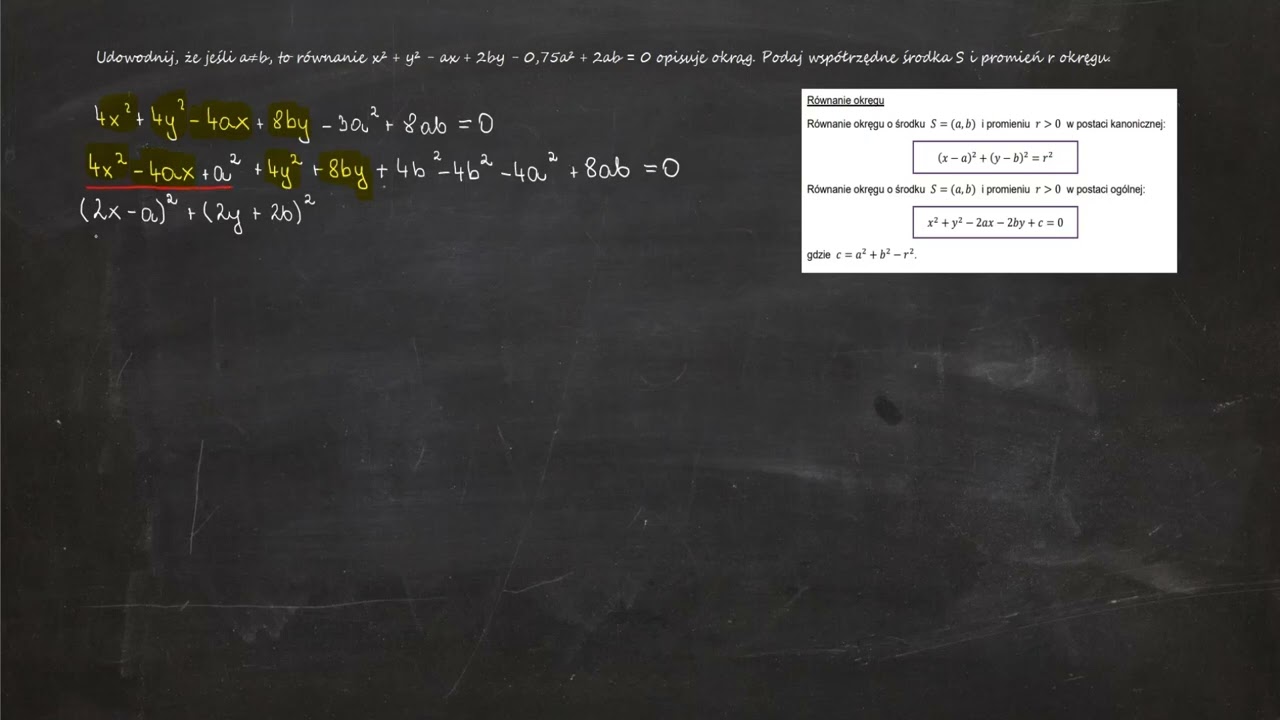 Udowodnij, że jeśli a≠b, to równanie x² + y² - ax + 2by - 0,75a² + 2ab = 0 opisuje okrąg. Podaj współrzędne środka S i promień r okręgu.
4x² + 4y² - 4ax + 8by - 3a² + 8ab = 0
4x² - 4ax + a² + 4y² + 8by + 4b² - 4b² - 4a² + 8ab = 0
(2x - a)² + (2y + 2b)²
Równanie okręgu
Równanie okręgu o środku S = (a, b) i promieniu r > 0 w postaci kanonicznej:
(x − a)² + (y − b)² = r²
Równanie okręgu o środku S = (a, b) i promieniu r > 0 w postaci ogólnej:
x² + y² − 2ax − 2by + c = 0
gdzie c = a² + b² − r².